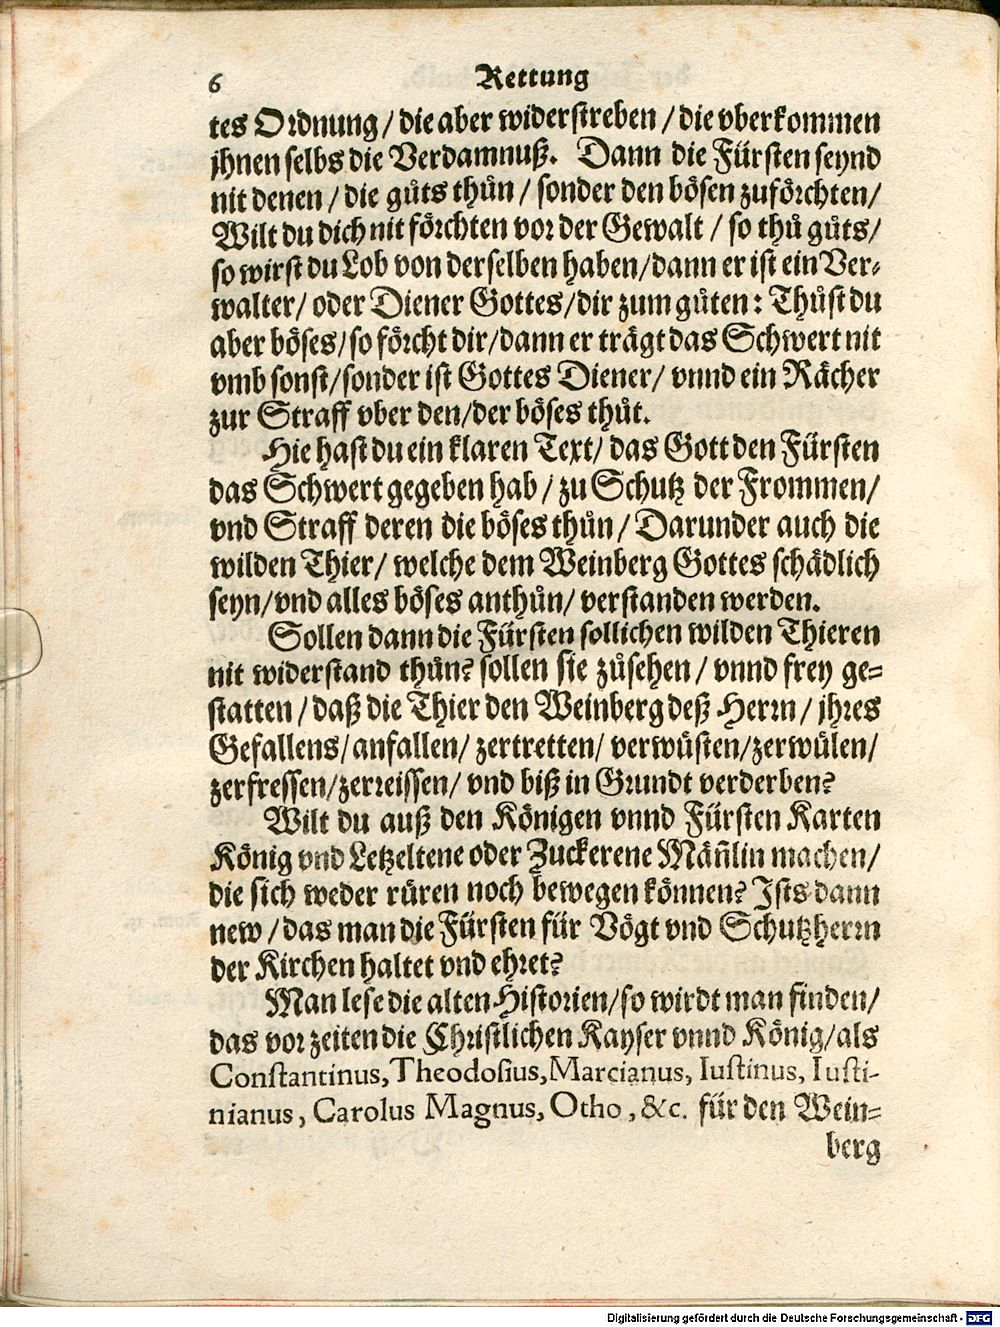 6 Rettung
tes Ordnung / die aber widerstreben / die vberkommen
jhnen selbs die Verdamnuß. Dann die Fürsten seynd
nit denen / die gůts thůn / sonder den bösen zuförchten /
Wilt du dich nit förchten vor der Gewalt / so thů gůts /
so wirst du Lob von derselben haben / dann er ist ein Ver-
walter / oder Diener Gottes / dir zum gůten: Thůst du
aber böses / so förcht dir / dann er trägt das Schwert nit
vmb sonst / sonder ist Gottes Diener / vnnd ein Rächer
zur Straff vber den / der böses thůt.
Hie hast du ein klaren Text / das Gott den Fürsten
das Schwert gegeben hab / zu Schutz der Frommen /
vnd Straff deren die böses thůn / Darunder auch die
wilden Thier / welche dem Weinberg Gottes schädlich
seyn / vnd alles böses anthůn / verstanden werden.
Sollen dann die Fürsten sollichen wilden Thieren
nit widerstand thůn? sollen sie zůsehen / vnnd frey ge-
statten / daß die Thier den Weinberg deß Herrn / jhres
Gefallens / anfallen / zertretten / verwüsten / zerwülen /
zerfressen / zerreissen / vnd biß in Grundt verderben?
Wilt du auß den Königen vnnd Fürsten Karten
König vnd Letzeltene oder Zuckerene Mäñlin machen /
die sich weder rüren noch bewegen können? Ists dann
new / das man die Fürsten für Vögt vnd Schutzherrn
der Kirchen haltet vnd ehret?
Man lese die alten Historien / so wirdt man finden /
das vor zeiten die Christlichen Kayser vnnd König / als
Constantinus, Theodosius, Marcianus, Iustinus, Iusti-
nianus, Carolus Magnus, Otho, &c. für den Wein-
berg
Digitalisierung gefördert durch die Deutsche Forschungsgemeinschaft - DFG